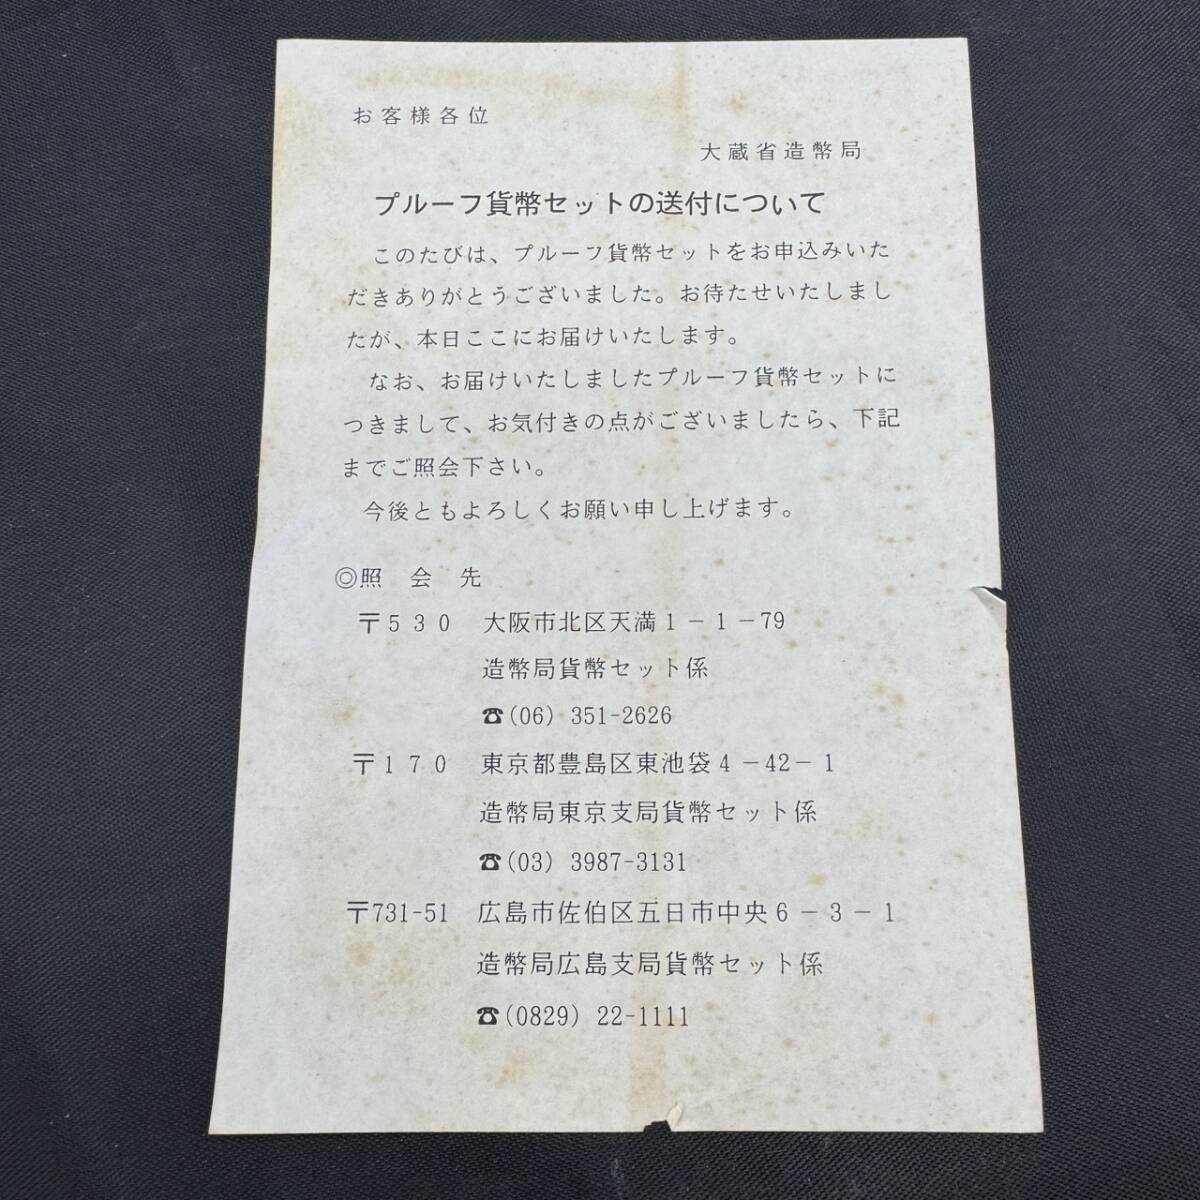 お客様各位
大蔵省造幣局
プルーフ貨幣セットの送付について
このたびは、プルーフ貨幣セットをお申込みいた
だきありがとうございました。お待たせいたしまし
たが、本日ここにお届けいたします。
なお、お届けいたしましたプルーフ貨幣セットに
つきまして、お気付きの点がございましたら、下記
までご照会下さい。
今後ともよろしくお願い申し上げます。
◎照　会　先
〒５３０　大阪市北区天満１－１－79
造幣局貨幣セット係
☎(06) 351-2626
〒１７０　東京都豊島区東池袋４－42－１
造幣局東京支局貨幣セット係
☎(03) 3987-3131
〒731-51　広島市佐伯区五日市中央６－３－１
造幣局広島支局貨幣セット係
☎(0829) 22-1111